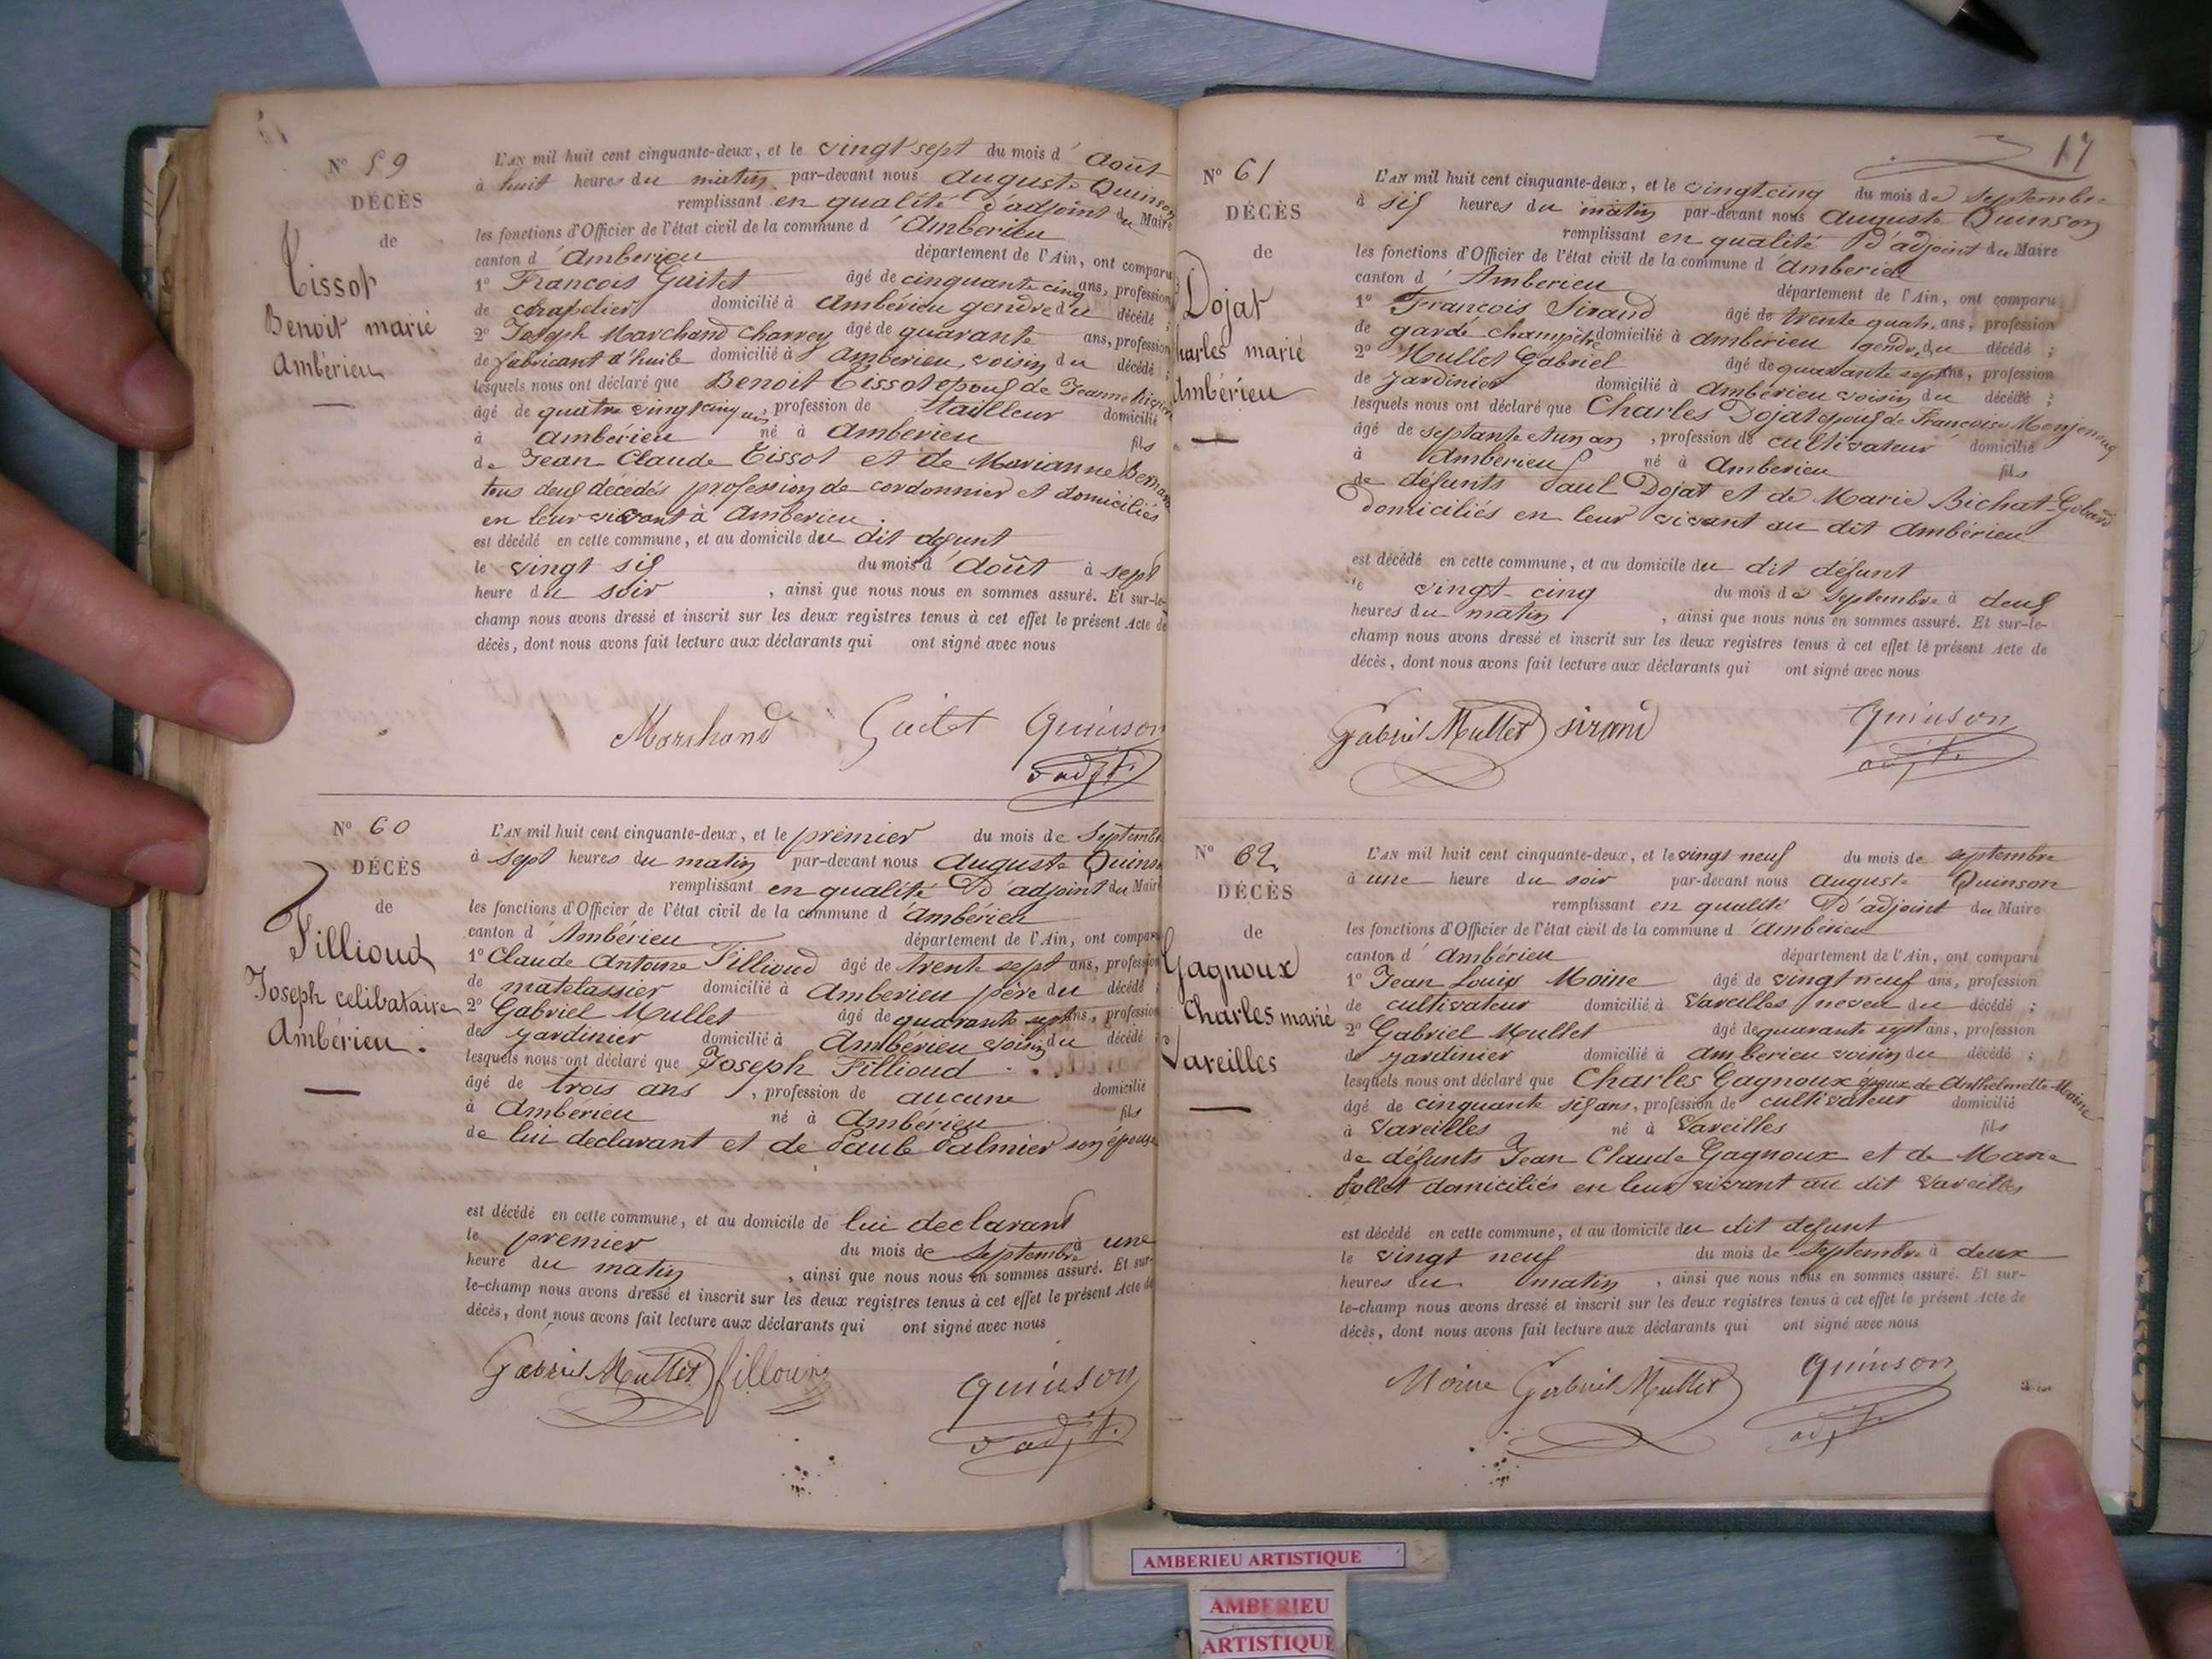 Nº 59
DÉCÈS
de
Tissot
Benoit marié
Ambérieu
L'AN mil huit cent cinquante-deux, et le vingt sept du mois d' août
à huit heures du matin par-devant nous auguste Quinson
remplissant en qualité d'adjoint du Maire
les fonctions d'Officier de l'état civil de la commune d'Ambérieu
canton d'Ambérieu département de l'Ain, ont comparu
1º François Guitet âgé de cinquante cinq ans, profession
de chapelier domicilié à Ambérieu gendre du décédé ;
2º Joseph Marchand Charrey âgé de quarante ans, profession
de fabricant d'huile domicilié à Amberieu, voisin du décédé ;
lesquels nous ont déclaré que Benoit Tissot epoux de Jeanne
âgé de quatre vingt cinq ans, profession de tailleur domicilié
à ambérieu né à Amberieu fils
de Jean Claude Tissot et de Marianne
tous deux décédés profession de cordonnier et domiciliés
en leur vivant à Amberieu.
est décédé en cette commune, et au domicile du dit défunt
le vingt six du mois d'août à sept
heure du soir , ainsi que nous nous en sommes assuré. Et sur-le-
champ nous avons dressé et inscrit sur les deux registres tenus à cet effet le présent Acte de
décès, dont nous avons fait lecture aux déclarants qui ont signé avec nous
Marchand Guitet Quinson
d'adjt.
Nº 60
DÉCÈS
de
Fillioud
Joseph celibataire
Ambérieu.
L'AN mil huit cent cinquante-deux, et le premier du mois de Septembre
à sept heures du matin par-devant nous Auguste Quinson
remplissant en qualité D'adjoint du Maire
les fonctions d'Officier de l'état civil de la commune d'ambérieu
canton d'Ambérieu département de l'Ain, ont comparu
1º Claude Antoine Fillioud âgé de trente sept ans, profession
de matelassier domicilié à Amberieu père du décédé ;
2º Gabriel Mullet âgé de quarante sept ans, profession
de jardinier domicilié à Ambérieu voisin du décédé ;
lesquels nous ont déclaré que Joseph Fillioud
âgé de trois ans , profession de aucune domicilié
à Ambérieu né à Ambérieu fils
de lui declarant et de Paule Palmier son épouse
est décédé en cette commune, et au domicile de lui declarant
le premier du mois de Septembre à une
heure du matin , ainsi que nous nous en sommes assuré. Et sur-
le-champ nous avons dressé et inscrit sur les deux registres tenus à cet effet le présent Acte de
décès, dont nous avons fait lecture aux déclarants qui ont signé avec nous
Gabriel Mullet Quinson
d'adjt.
17
Nº 61
DÉCÈS
de
Dojat
Charles marié
Ambérieu
L'AN mil huit cent cinquante-deux, et le vingt-cinq du mois de Septembre
à six heures du matin par-devant nous Auguste Quinson
remplissant en qualité D'adjoint du Maire
les fonctions d'Officier de l'état civil de la commune d'Amberieu
canton d'Amberieu département de l'Ain, ont comparu
1º François Sirand âgé de trente quatr. ans, profession
de garde champêtre domicilié à ambérieu gendre, du décédé ;
2º Mullet Gabriel âgé de quarante sept ans, profession
de Jardinier domicilié à Ambérieu voisin du décédé ;
lesquels nous ont déclaré que Charles Dojat epoux de Françoise
âgé de septante et un an , profession de cultivateur domicilié
à Amberieu né à Amberieu fils
de défunts Paul Dojat et de Marie Bichat-
Domiciliés en leur vivant au dit Ambérieu
est décédé en cette commune, et au domicile du dit défunt
le vingt-cinq du mois de Septembre à deux
heures du matin , ainsi que nous nous en sommes assuré. Et sur-le-
champ nous avons dressé et inscrit sur les deux registres tenus à cet effet le présent Acte de
décès, dont nous avons fait lecture aux déclarants qui ont signé avec nous
Gabriel Mullet Sirand Quinson
adjt.
Nº 62
DÉCÈS
de
Gagnoux
Charles marié
Vareilles
L'AN mil huit cent cinquante-deux, et le vingt neuf du mois de septembre
à une heure du soir par-devant nous Auguste Quinson
remplissant en qualité D'adjoint du Maire
les fonctions d'Officier de l'état civil de la commune d'Ambérieu
canton d'Ambérieu département de l'Ain, ont comparu
1º Jean Louis Moine âgé de vingt neuf ans, profession
de cultivateur domicilié à Vareilles neveu du décédé ;
2º Gabriel Mullet âgé de quarante sept ans, profession
de jardinier domicilié à amberieu voisin du décédé ;
lesquels nous ont déclaré que Charles Gagnoux époux de Anthelmette Moine
âgé de cinquante six ans, profession de cultivateur domicilié
à Vareilles né à Vareilles fils
de défunts Jean Claude Gagnoux et de Marie
Follet domiciliés en leur vivant au dit Vareilles
est décédé en cette commune, et au domicile du dit défunt
le vingt neuf du mois de Septembre à deux
heures du matin , ainsi que nous nous en sommes assuré. Et sur-
le-champ nous avons dressé et inscrit sur les deux registres tenus à cet effet le présent Acte de
décès, dont nous avons fait lecture aux déclarants qui ont signé avec nous
Moine Gabriel Mullet Quinson
adjt.
AMBERIEU ARTISTIQUE
AMBERIEU
ARTISTIQUE